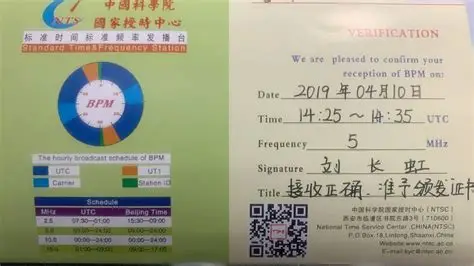 中國科學院
NTS
國家授時中心
标准时间标准频率发播台
Standard Time&Frequency Station
BPM
The hourly broadcast schedule of BPM
UTC
UT1
Carrier
Station ID
Schedule
MHz UTC Beijing Time
2.5 07:30—01:00 15:30—09:00
5.0 00:00—24:00 00:00—24:00
10.0 00:00—24:00 00:00—24:00
VERIFICATION
We are pleased to confirm your
reception of BPM on:
Date 2019年04月10日
Time 14:25～14:35 UTC
Frequency 5 MHz
Signature 刘长虹
Title 接收正确、准予颁发证书
中国科学院国家授时中心 (NTSC)
西安市临潼区书院东路3号 (710600)
National Time Service Center, CHINA(NTSC)
P.O.Box 18,Lintong,Shaanxi,China